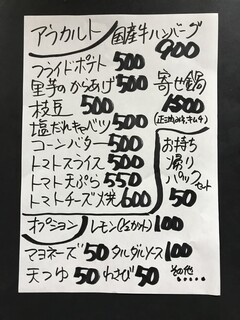 アラカルト
国産牛ハンバーグ 900
フライドポテト 500
里芋のからあげ 500
枝豆 500
塩だれキャベツ 500
コーンバター 500
トマトスライス 500
トマト天ぷら 550
トマトチーズ焼 600
寄せ鍋
1500
お持ち
帰り
パックセット
50
オプション
レモン(1カット) 100
マヨネーズ 50 タルタルソース 100
天つゆ 50 わさび 50 その他.....